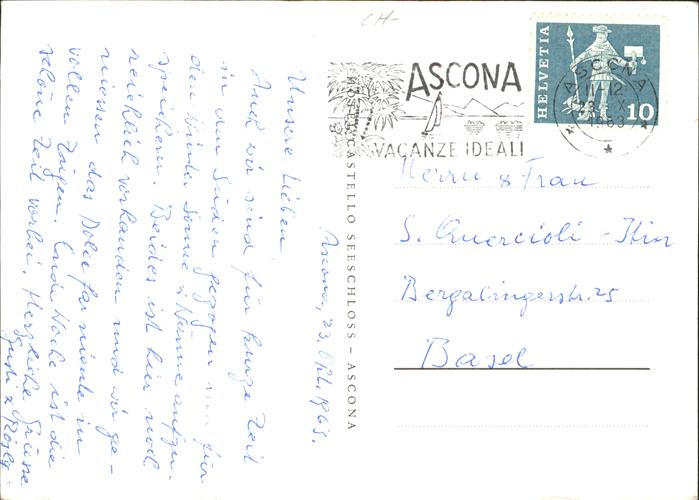 CH-
HELVETIA
10
ASCONA
11-12
23. X.
1963
ASCONA
VACANZE IDEALI
HOTEL CASTELLO SEESCHLOSS – ASCONA
Ascona, 23. Okt. 1963.
Unsere Lieben
Auch wir sind für kurze Zeit
in den Süden gezogen um für
den Winter Sonne & Wärme aufzu-
speichern. Beides ist hier noch
reichlich vorhanden und wir ge-
niessen das Dolce far niente in
vollen Zügen. Ende Woche ist die
schöne Zeit vorbei. Herzliche Grüsse
Gusti & Rösly.
Herrn & Frau
S. Quercioli -
Bergalingerstr. 25
Basel